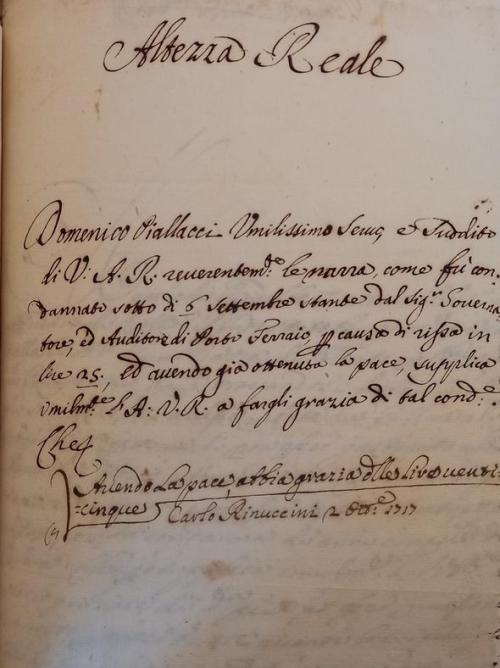 Altezza Reale
Domenico Piallacci Umilissimo Servo e Suddito
di V: A. R. reverentem.te le narra, come fù con-
dannato sotto di 6 Settembre stante dal Sig.r Governa
tore, ed Auditore di Porto Ferraio, p causa di rissa in
lire 25:, ed avendo già ottenuta la pace, supplica
umilm.te l'A: V. R. a fargli grazia di tal cond.e.
Che
Avendo la pace, abbia grazia dlle Lire venti-
=cinque
Carlo Rinuccini 2 8tt.e 1717